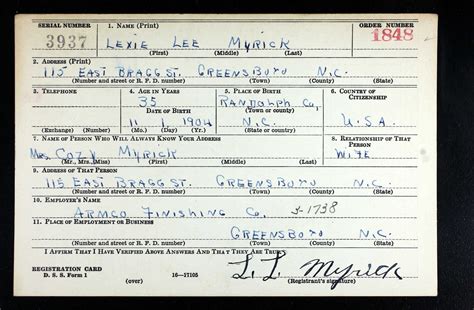 SERIAL NUMBER 1. NAME (Print) ORDER NUMBER
3937 LEXIE LEE MYRICK 1848
(First) (Middle) (Last)
2. ADDRESS (Print)
115 EAST BRAGG ST. GREENSBORO N.C.
(Number and street or R. F. D. number) (Town) (County) (State)
3. TELEPHONE 4. AGE IN YEARS 5. PLACE OF BIRTH 6. COUNTRY OF CITIZENSHIP
35 RANDOLPH CO,
DATE OF BIRTH (Town or county)
11 1 1904 N.C. U.S.A.
(Exchange) (Number) (Mo.) (Day) (Yr.) (State or country)
7. NAME OF PERSON WHO WILL ALWAYS KNOW YOUR ADDRESS 8. RELATIONSHIP OF THAT PERSON
Mrs. MYRICK WIFE
(Mr., Mrs., Miss) (First) (Middle) (Last)
9. ADDRESS OF THAT PERSON
115 EAST BRAGG ST. GREENSBORO N.C.
(Number and street or R. F. D. number) (Town) (County) (State)
10. EMPLOYER'S NAME
ARMCO FINISHING CO. 3-1738
11. PLACE OF EMPLOYMENT OR BUSINESS
GREENSBORO N.C.
(Number and street or R. F. D. number) (Town) (County) (State)
I AFFIRM THAT I HAVE VERIFIED ABOVE ANSWERS AND THAT THEY ARE TRUE.
REGISTRATION CARD L. L. Myrick
D. S. S. Form 1 (over) 16—17105 (Registrant's signature)